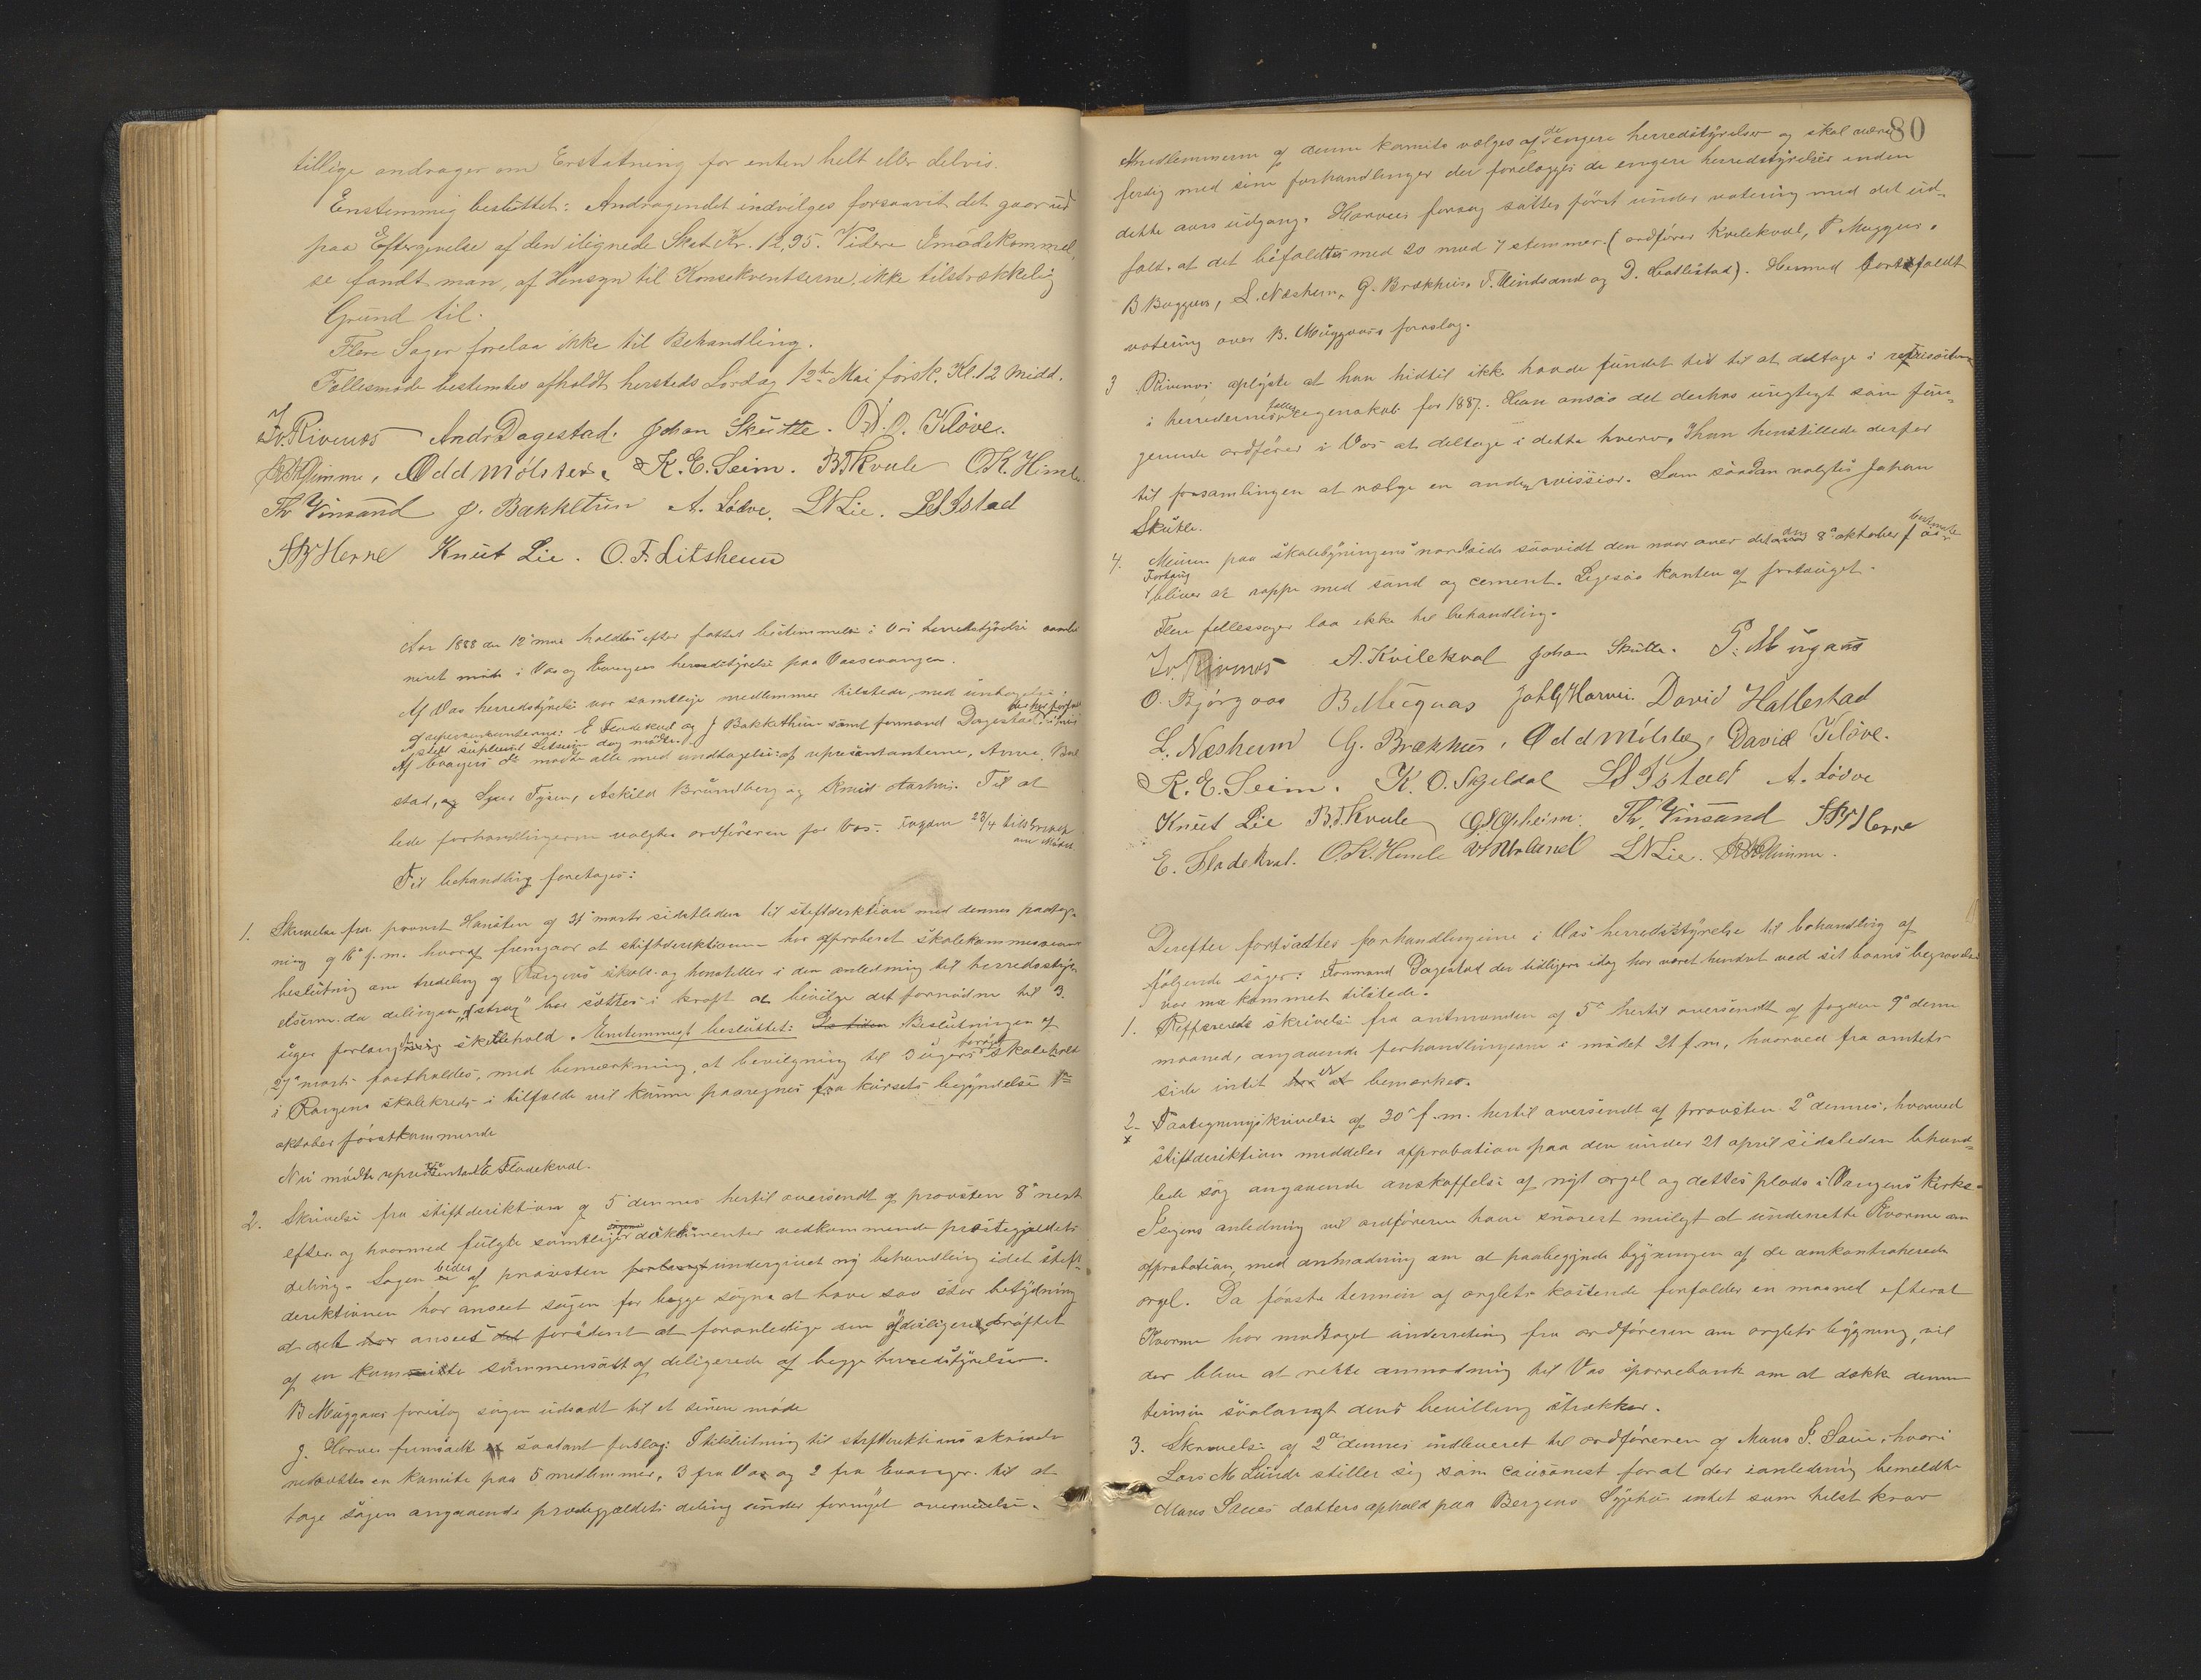 tillige andrager om Erstatning for enten helt eller delvis.
Enstemmig besluttet: Andragendet indvilges forsaavit det gaar ud
paa Eftergivelse af den ilignede Skat Kr. 12,95. Videre Imødekommel
se fandt man, af Hensyn til Konsekventserne, ikke tilstrækkelig
Grund til.
Flere Sager forelaa ikke til Behandling.
Fællesmøde bestemtes afholdt hersteds Lørdag 12te Mai førstk. Kl. 12 Midd.
Iv. Rivenes Andr Dagestad. Johan Skutle. D. J. Kløve.
Gjimme, Odd Mølster, K. E. Seim. B T Kvale O K. Himle
Th Vinsand J. Bakketun A. Lødve, L N Lie. L S Istad
Herre Knut Lie. O. F. Litsheim
Aar 1888 den 12 mai holdtes efter fattet bestemmelse i Vos herredstyrelse kombi
neret møde i Vos og Evangers herredstyrelse paa Vossevangen.
Af Vos herredstyrelse var samtlige medlemmer tilstede med undtagelse
af repræsentanterne: E Fladekval og J Bakkethun samt formand Dagestad der har forfald
Af Evangers do mødte alle med undtagelse af repræsentanterne, Arne Bol
stad, og Sjur Tysen, Askild Brundberg og Knud Aarhus. Til at
lede forhandlingerne valgtes ordføreren for Vos. Fogden 23/4 tilskrevet
om Mødet
Til behandling foretoges:
1. Skrivelse fra provst Hansten af 31 marts sidstleden til stiftdirektion med dennes paateg-
ning af 16 f. m. hvoraf fremgaar at stiftdirektionen har approberet skolekommissionens
beslutning om tredeling af Vangens skole og henstiller i den anledning til herredssty-
elserne, da delingen "strax" bør sættes i kraft at bevilge det fornødne til 3
uger forlænget skolehold. Enstemmigt besluttet: Da tiden Beslutningen af
27 marts fastholdes, med bemærkning, at bevilgning til 3 ugers skolehold
i Vangens skolekreds i tilfælde vil kunne paaregnes fra kursets begyndelse 1ste
oktober førstkommende
Nu mødte repræsentant E Fladekval.
2. Skrivelse fra stiftdirektion af 5 dennes hertil oversendt af provsten 8 næst
efter og hvormed fulgte samtlige sagens dokumenter vedkommende præstegjældets
deling. Sagen bedes af provsten undergivet ny behandling idet stift-
direktionen har anseet sagen for begge sogne at have saa stor betydning
at det har anseet det forsvarligt at foranledige den yderligere drøftet
af en kommitte sammensatt af deligerede af begge herredstyrelser.
B Mugaas foreslog sagen udsadt til et senere møde
J. Horvei fremsadte saadant forslag: I tilslutning til stiftdirektions skrivelse
nedsættes en komite paa 5 medlemmer, 3 fra Vos og 2 fra Evanger til at
tage sagen angaaende prestegjældets deling under fornyet overveielse.
80
Medlemmerne af denne komite vælges af de engere herredstyrelser og skal være
ferdig med sine forhandlinger der forelægges de engere herredstyrelser inden
dette aars udgang. Horveis forslag sattes først under votering med det ud-
fald, at det bifaldtes med 20 mod 7 stemmer (ordfører Kvilekval, P Muggaas,
B Muggaas, L. Næsheim, G. Brækhus, T. Vindsand og D. Hallestad). Hermed bortfaldt
votering over B. Muggaas's forslag.
3 Rivenes oplyste at han hidtil ikke havde fundet tid til at deltage i revisionen
i herredernes fælles regnskab for 1887. Han ansaa det derhos urigtigt som fun-
gerende ordfører i Vos at deltage i dette hverv. Han henstillede derfor
til forsamlingen at vælge en anden revissior. Som saadan valgtes Johan
Skutle.
4. Muren paa skolebygningens nordside saavidt den naar over det den 8de oktober f. a. beskrevne
Fortoug
bliver at rappe med sand og cement. Ligesaa kanten af fortouget.
Flere fellessager laa ikke til behandling.
Iv. Rivenes A. Kvilekval Johan Skutle. P. Mugaas
O. Bjørgaas B Mugaas Joh G Horvei. David Hallestad
L. Næsheim G. Brækhus, Odd Mølster, David Kløve.
K. E. Seim. K. O. Skjeldal L S Istad A. Lødve
Knut Lie B. T. Kvale Opheim. Th. Vinsand Herre
E. Fladekval. O. K. Himle L N Lie. Gjimme.
Derefter fortsattes forhandlingerne i Vos herredsstyrelse til behandling af
følgende sager: Formand Dagestad der tidligere idag har været hendret ved sit barns begravelse
var nu kommet tilstede.
1. Refererede skrivelse fra amtmanden af 5te hertil oversendt af fogden 9de denne
maaned, angaaende forhandlingerne i mødet 21 f. m., hvorved fra amtets
side intet er at bemærke.
2. Paategningsskrivelse af 30te f. m. hertil oversendt af provsten 2de dennes, hvorved
x
stiftdirektion meddeler approbation paa den under 21 april sidstleden behand-
lede sag angaaende anskaffelse af nyt orgel og dettes plads i Vangens kirke.
I sagens anledning vil ordføreren have snarest muligt at underrette Kvarme om
approbation, med anmodning om at paabegynde bygningen af de omkontraherede
orgel. Da første termin af orglets kostende forfalder en maaned efterat
Kvarme har modtaget underretning fra ordføreren om orglets bygning, vil
der blive at rette anmodning til Vos sparebank om at dække denne
termin saalangt dens bevilling strækker.
3. Skrivelse af 2de dennes indleveret til ordføreren af Mans P. Saue, hvori
Lars M Lunde stiller sig som causionist for at der i anledning bemeldte
Mans Saues datters ophold paa Bergens Sygehus intet som helst krav